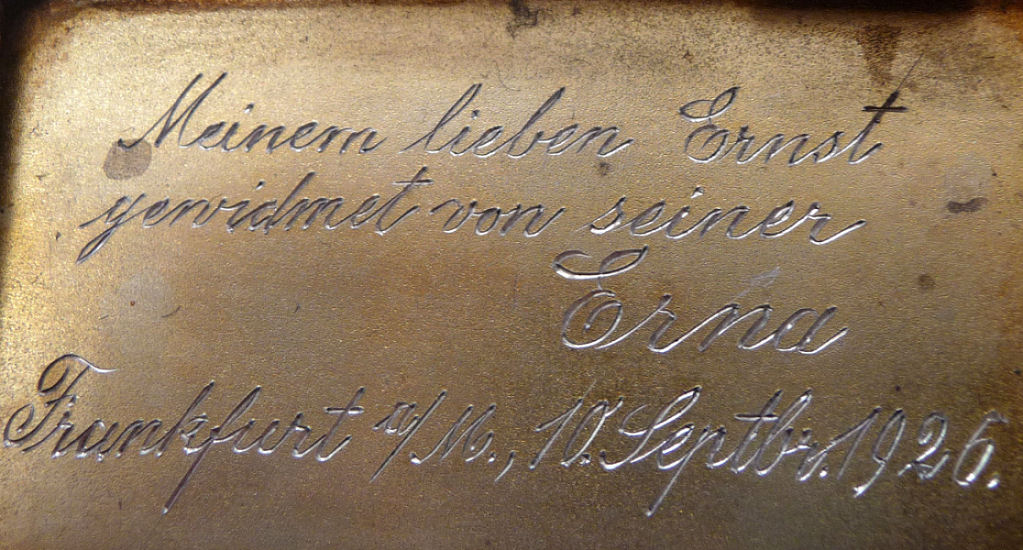 Meinem lieben Ernst
gewidmet von seiner
Erna
Frankfurt a/M., 10. Septbr. 1925.